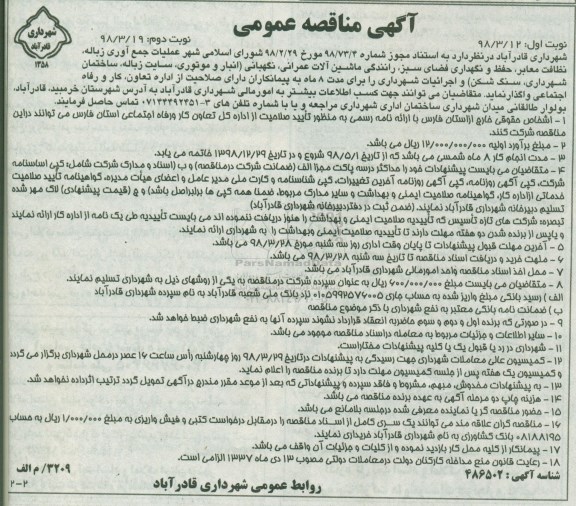 آگهی مناقصه عمومی
شهرداری
قادرآباد
۱۳۵۸
نوبت اول: ۹۸/۳/۱۲
نوبت دوم: ۹۸/۳/۱۹
شهرداری قادرآباد درنظردارد به استناد مجوز شماره ۹۸/۷۳/۴ مورخ ۹۸/۲/۲۹ شورای اسلامی شهر عملیات جمع آوری زباله،
نظافت معابر، حفظ و نگهداری فضای سبز، رانندگی ماشین آلات عمرانی، نگهبانی (انبار و موتوری، سایت زباله، ساختمان
شهرداری، سنگ شکن) و اجرائیات شهرداری را برای مدت ۸ ماه به پیمانکاران دارای صلاحیت از اداره تعاون، کار و رفاه
اجتماعی واگذار نماید. متقاضیان می توانند جهت کسب اطلاعات بیشتر به امورمالی شهرداری قادرآباد به آدرس شهرستان خرمبید، قادرآباد،
بولوار طالقانی میدان شهرداری ساختمان اداری شهرداری مراجعه و یا با شماره تلفن های ۳-۰۷۱۴۴۴۹۲۴۵۱ تماس حاصل فرمایند.
۱ - اشخاص حقوقی خارج ازاستان فارس با ارائه نامه رسمی به منظور تایید صلاحیت از اداره کل تعاون کار ورفاه اجتماعی استان فارس می توانند دراین
مناقصه شرکت کنند.
۲ - مبلغ برآورد اولیه ۱۲/۰۰۰/۰۰۰/۰۰۰ ریال می باشد.
۳ - مدت انجام کار ۸ ماه شمسی می باشد که از تاریخ ۹۸/۵/۱ شروع و در تاریخ ۱۳۹۸/۱۲/۲۹ خاتمه می یابد.
۴ - متقاضیان می بایست پیشنهادات خود را حداکثر درسه پاکت مجزا الف (ضمانت شرکت درمناقصه) و ب (اسناد و مدارک شرکت شامل: کپی اساسنامه
شرکت، کپی آگهی روزنامه، کپی آگهی روزنامه آخرین تغییرات، کپی شناسنامه و کارت ملی مدیر عامل و اعضای هیأت مدیره، گواهینامه تأیید صلاحیت
خدماتی ازاداره کار، گواهینامه صلاحیت ایمنی و بهداشت و سایر مدارک مربوط، ضمنا همه کپی ها برابراصل باشد) و ج (قیمت پیشنهادی) لاک مهر شده
تسلیم دبیرخانه شهرداری قادرآباد نمایند. (ضمن ثبت در دفتردبیرخانه شهرداری قادرآباد)
تبصره شرکت های تازه تأسیس که تأییدیه صلاحیت ایمنی و بهداشت را هنوز دریافت ننموده اند می بایست تأییدیه طی یک نامه از اداره کار ارائه نمایند
و پاپس از برنده شدن دو هفته مهلت دارند تا تأییدیه صلاحیت ایمنی وبهداشت را به شهرداری ارائه نمایند.
۵ - آخرین مهلت قبول پیشنهادات تا پایان وقت اداری روز سه شنبه مورخ ۹۸/۳/۲۸ می باشد.
۶ - مهلت خرید و دریافت اسناد مناقصه تا تاریخ سه شنبه ۹۸/۳/۲۸ می باشد.
۷ - محل اخذ اسناد مناقصه واحد امورمالی شهرداری قادرآباد می باشد.
۸ - متقاضیان می بایست مبلغ ۶۰۰/۰۰۰/۰۰۰ ریال به عنوان سپرده شرکت درمناقصه به یکی از روشهای ذیل به شهرداری تسلیم نمایند.
الف) رسید بانکی مبلغ واریز شده به حساب جاری ۰۱۰۵۹۹۲۵۷۶۰۰۵ نزد بانک ملی شعبه قادرآباد به نام سپرده شهرداری قادرآباد
ب) ضمانت نامه بانکی معتبر به نفع شهرداری با ذکر موضوع مناقصه
۹ - در صورتی که برنده اول و دوم و سوم حاضربه انعقاد قرارداد نشوند سپرده آنها به نفع شهرداری ضبط خواهد شد.
۱۰ - سایر اطلاعات و جزئیات مربوط به معامله دراسناد مناقصه موجود می باشد.
۱۱ - شهرداری در رد یا قبول یک یا کلیه پیشنهادات مختاراست.
۱۲ - کمیسیون عالی معاملات شهرداری جهت رسیدگی به پیشنهادات درتاریخ ۹۸/۳/۲۹ روز چهارشنبه رأس ساعت ۱۶ عصر درمحل شهرداری برگزار می گردد
و کمیسیون یک هفته پس از جلسه کمیسیون مهلت دارد تا برنده مناقصه را اعلام نماید.
۱۳ - به پیشنهادات مخدوش، مبهم، مشروط و فاقد سپرده وپیشنهاداتی که بعد از موعد مقرر مندرج درآگهی تحویل گردد ترتیب اثرداده نخواهد شد.
۱۴ - هزینه چاپ دو مرحله آگهی به عهده برنده مناقصه می باشد.
۱۵ - حضور مناقصه گر یا نماینده معرفی شده درجلسه بلامانع می باشد.
۱۶ - مناقصه گران علاقه مند می توانند یک سری کامل از اسناد مناقصه را درمقابل درخواست کتبی و فیش واریزی به مبلغ ۱/۰۰۰/۰۰۰ ریال به حساب
۰۸۱۸۸۱۹۵ بانک کشاورزی به نام شهرداری قادرآباد خریداری نمایند.
۱۷ - پیمانکار از کلیه محل کار بازدید نموده و از کلیات و جزئیات آن واقف می باشد.
۱۸ - رعایت قانون منع مداخله کارکنان دولت درمعاملات دولتی مصوب ۱۳ دی ماه ۱۳۳۷ الزامی است.
شناسه آگهی : ۴۸۶۵۰۲
۳۲۰۹/ م الف
روابط عمومی شهرداری قادرآباد
۲-۲